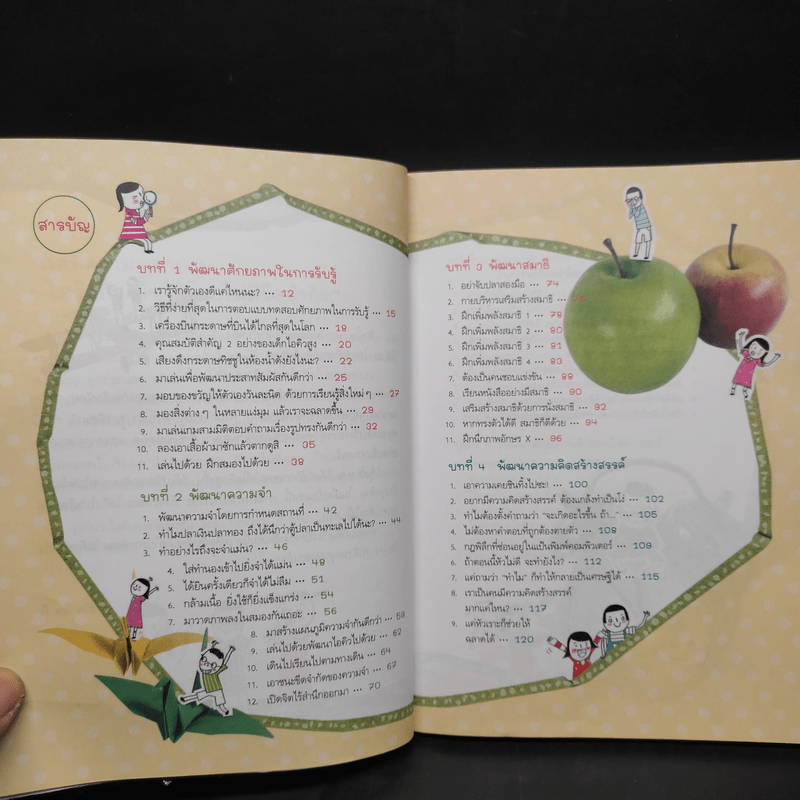 สารบัญ
บทที่ 1 พัฒนาศักยภาพในการรับรู้
1. เรารู้จักตัวเองดีแค่ไหนนะ? ... 12
2. วิธีที่ง่ายที่สุดในการตอบแบบทดสอบศักยภาพในการรับรู้ ... 15
3. เครื่องบินกระดาษที่บินได้ไกลที่สุดในโลก ... 18
4. คุณสมบัติสำคัญ 2 อย่างของเด็กไอคิวสูง ... 20
5. เสียงดึงกระดาษทิชชูในห้องน้ำดังยังไงนะ? ... 22
6. มาเล่นเพื่อพัฒนาประสาทสัมผัสกันดีกว่า ... 25
7. มอบของขวัญให้ตัวเองวันละนิด ด้วยการเรียนรู้สิ่งใหม่ๆ ... 27
8. มองสิ่งต่างๆ ในหลายแง่มุม แล้วเราจะฉลาดขึ้น ... 29
9. มาเล่นเกมสามมิติตอบคำถามเรื่องรูปทรงกันดีกว่า ... 32
10. ลองเอาเสื้อผ้ามาซักแล้วตากดูสิ ... 35
11. เล่นไปด้วย ฝึกสมองไปด้วย ... 38
บทที่ 2 พัฒนาความจำ
1. พัฒนาความจำโดยการกำหนดสถานที่ ... 42
2. ทำไมปลาเงินปลาทอง ถึงได้นึกว่าตู้ปลาเป็นทะเลไปได้นะ? ... 44
3. ทำอย่างไรถึงจะจำแม่น? ... 46
4. ใส่ทำนองเข้าไปยิ่งจำได้แม่น ... 49
5. ได้ยินครั้งเดียวก็จำได้ไม่ลืม ... 51
6. กล้ามเนื้อ ยิ่งใช้ก็ยิ่งแข็งแกร่ง ... 54
7. มาวาดภาพลงในสมองกันเถอะ ... 56
8. มาสร้างแผนภูมิความจำกันดีกว่า ... 59
9. เล่นไปด้วยพัฒนาไอคิวไปด้วย ... 62
10. เดินไปเรียนไปตามทางเดิน ... 64
11. เอาชนะขีดจำกัดของความจำ ... 67
12. เปิดจิตใต้สำนึกออกมา ... 70
บทที่ 3 พัฒนาสมาธิ
1. อย่าจับปลาสองมือ ... 74
2. กายบริหารเสริมสร้างสมาธิ ...
3. ฝึกเพิ่มพลังสมาธิ 1 ... 78
4. ฝึกเพิ่มพลังสมาธิ 2 ... 80
5. ฝึกเพิ่มพลังสมาธิ 3 ... 81
6. ฝึกเพิ่มพลังสมาธิ 4 ... 83
7. ต้องเป็นคนชอบแข่งขัน ... 88
8. เรียนหนังสืออย่างมีสมาธิ ... 90
9. เสริมสร้างสมาธิด้วยการนั่งสมาธิ ... 92
10. หากทรงตัวได้ดี สมาธิก็ดีด้วย ... 94
11. ฝึกนึกภาพอักษร X ... 96
บทที่ 4 พัฒนาความคิดสร้างสรรค์
1. เอาความเคยชินทิ้งไปซะ! ... 100
2. อยากมีความคิดสร้างสรรค์ ต้องแกล้งทำเป็นโง่ ... 102
3. ทำไมต้องตั้งคำถามว่า "จะเกิดอะไรขึ้น ถ้า..." ... 105
4. ไม่ต้องหาคำตอบที่ถูกต้องตายตัว ... 108
5. กฎพิลึกที่ซ่อนอยู่ในแป้นพิมพ์คอมพิวเตอร์ ... 109
6. ถ้าตอนนี้หัวไม่ดี จะทำยังไง? ... 112
7. แค่ถามว่า "ทำไม" ก็ทำให้กลายเป็นเศรษฐีได้ ... 115
8. เราเป็นคนมีความคิดสร้างสรรค์
มากแค่ไหน? ... 117
9. แค่หัวเราะก็ช่วยให้
ฉลาดได้ ... 120